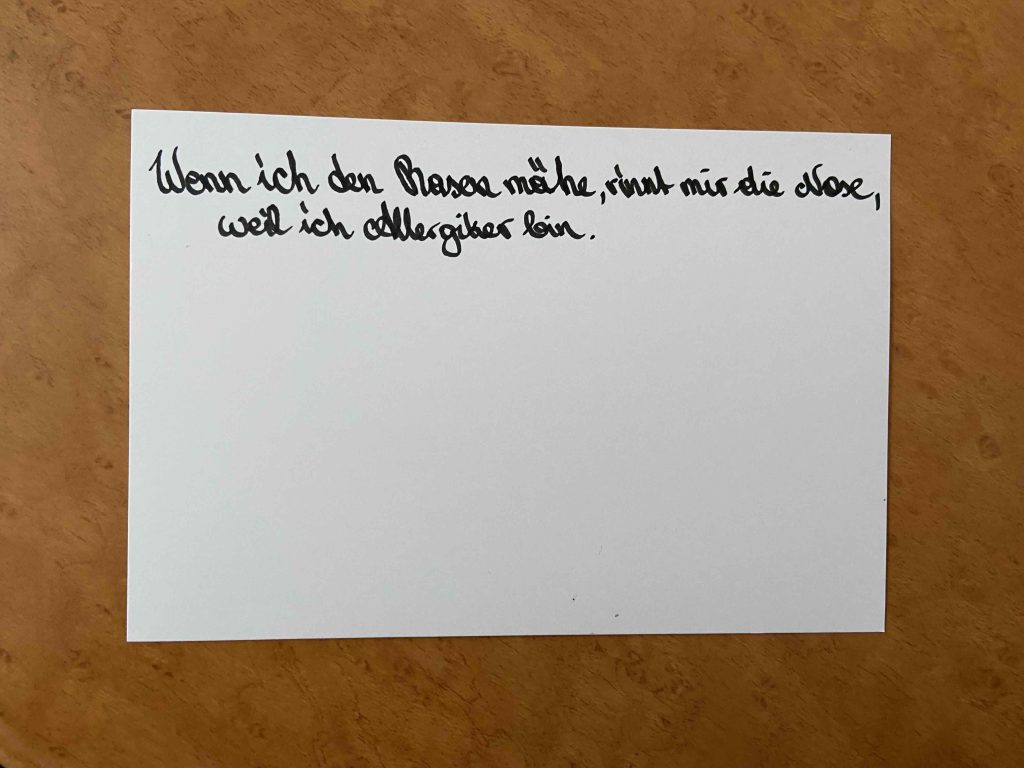 Wenn ich den Rasen mähe, rinnt mir die Nase,
weil ich Allergiker bin.